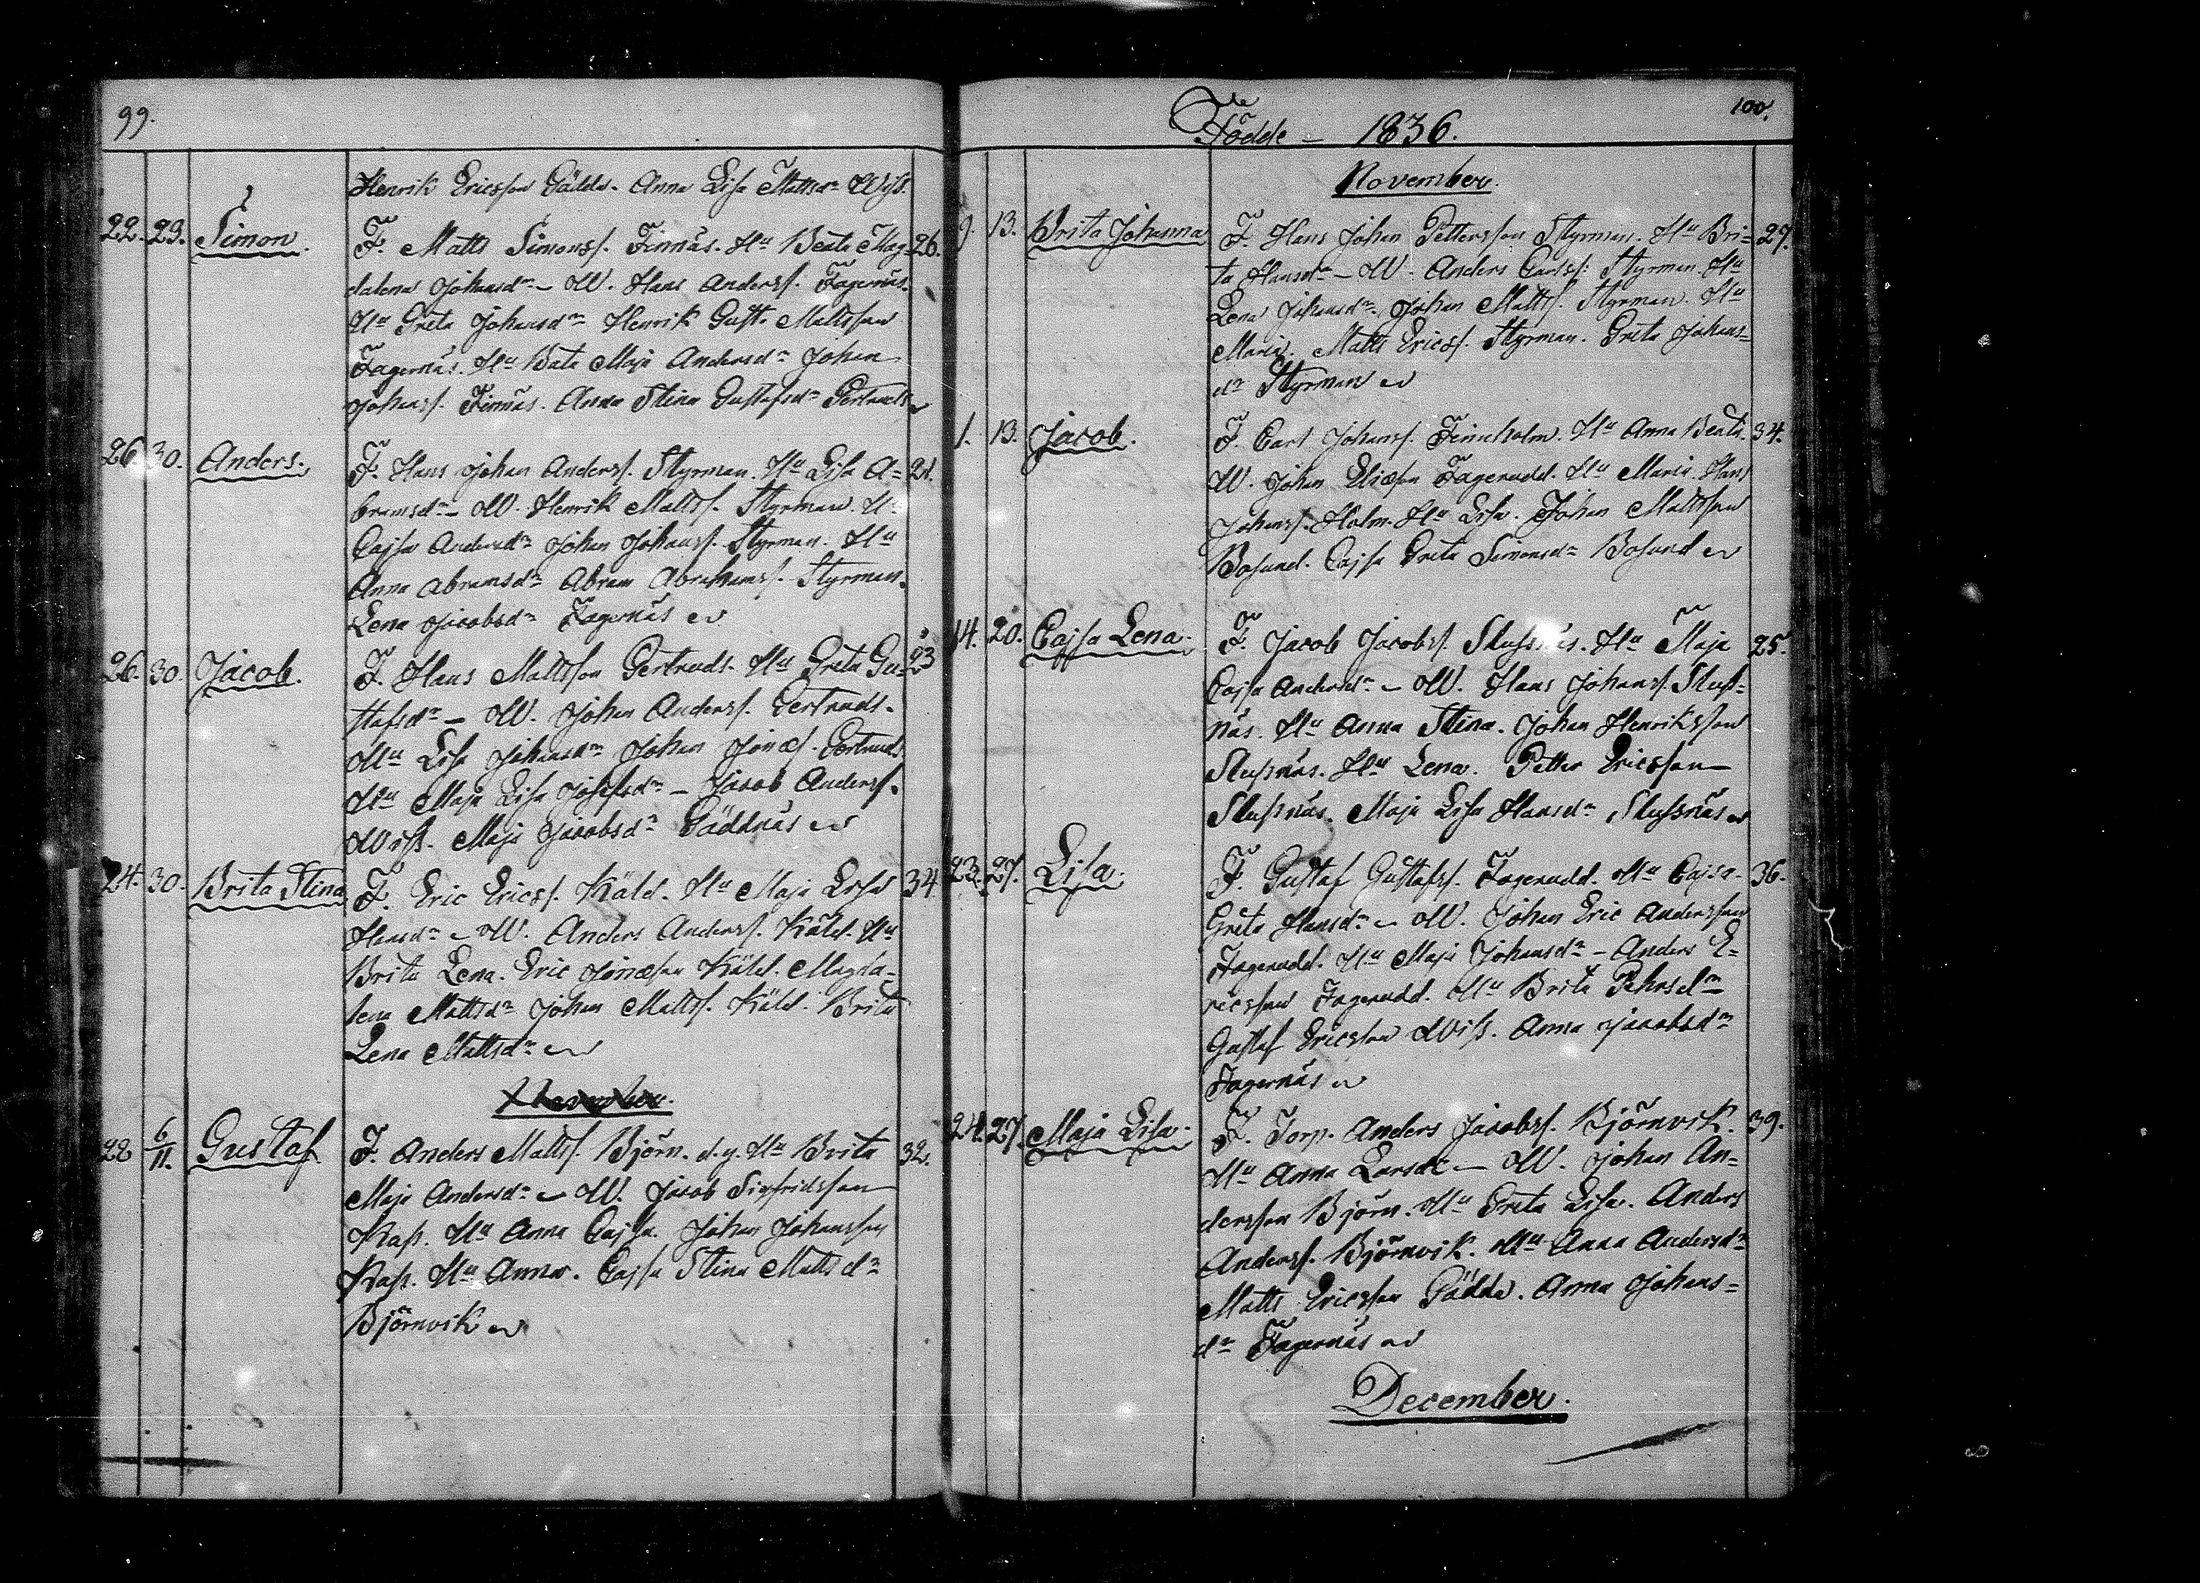 99.
Henrik Ericsson Gädda. Anna Lisa Mattsdr Wiss.
22. 23. Simon. F. Matts Simonss. Finnäs. Hu Beata Mag= 26.
dalena Johansdr – W. Hans Anderss. Fagernäs.
Hu Greta Johansdr Henrik Gust. Mattsson
Fagernäs. Hu Beata Maja Andersdr Johan
Johanss. Finnäs. Anna Stina Gustafsdr Gertruds
26. 30. Anders. F. Hans Johan Anderss. Styrman. Hu Lisa A= 21.
bramsdr – W. Henrik Mattss. Styrman. Hu
Cajsa Andersdr Johan Johanss. Styrman. Hu
Anna Abramsdr Abram Abrahamss. Styrman.
Lena Jacobsdr Fagernäs
26. 30. Jacob. F. Hans Mattsson Gertruds. Hu Greta Gu= 23
stafsdr – W. Johan Anderss. Gertruds.
Hu Lisa Johansdr Johan Jonæs. Gertruds
Hu Maja Lisa Josefsdr – Jacob Anderss.
Wiss. Maja Jacobsdr Gäddnäs
24. 30. Brita Stina F. Eric Ericss. Käld. Hu Maja Lisa 34
Hansdr – W. Anders Anderss. Käld. Hu
Brita Lena. Eric Jonæson Käld. Magda=
lena Mattsdr Johan Mattss. Käld. Brita
Lena Mattsdr
November.
28 6/11. Gustaf F. Anders Mattss. Björn. d.y. Hu Brita 32.
Maja Andersdr – W. Jacob Sigfridsson
Kass. Hu Anna Cajsa. Johan Johansson
Kass. Hu Anna. Cajsa Stina Mattsdr
Björnvik
Födde – 1836. 100.
November.
9. 13. Brita Johanna F. Hans Johan Pettersson Styrman. Hu Bri= 27.
ta Hansdr – W. Anders Carlss. Styrman. Hu
Lena Johansdr. Johan Mattss. Styrman. Hu
Maria. Matts Ericss. Styrman. Greta Johans=
dr Styrman
1. 13. Jacob. F. Carl Johanss. Finnholm. Hu Anna Beata. 34.
W. Johan Eliæson Fagerudd. Hu Maria. Hans
Johanss. Holm. Hu Lisa. Johan Mattsson
Bosund. Cajsa Greta Simonsdr Bosund
14. 20. Cajsa Lena. F. Jacob Jacobss. Slussnäs. Hu Maja 25.
Cajsa Andersdr – W. Hans Johanss. Sluss=
näs. Hu Anna Stina. Johan Henriksson
Slussnäs. Hu Lena. Petter Ericsson
Slussnäs. Maja Lisa Hansdr Slussnäs
23. 27. Lisa. F. Gustaf Gustafss. Fagerudd. Hu Cajsa 36.
Greta Hansdr – W. Johan Eric Andersson
Fagerudd. Hu Maja Johansdr – Anders E=
ricsson Fagerudd. Hu Brita Pehrsdr
Gustaf Ericsson Wiss. Anna Jacobsdr
Fagernäs
24. 27. Maja Lisa. F. Torp. Anders Jacobss. Björnvik. 39.
Hu Anna Larsdr – W. Johan An=
dersson Björn. Hu Greta Lisa. Anders
Anderss. Björnvik. Hu Anna Andersdr
Matts Ericsson Gädda. Anna Johans=
dr Fagernäs
December.